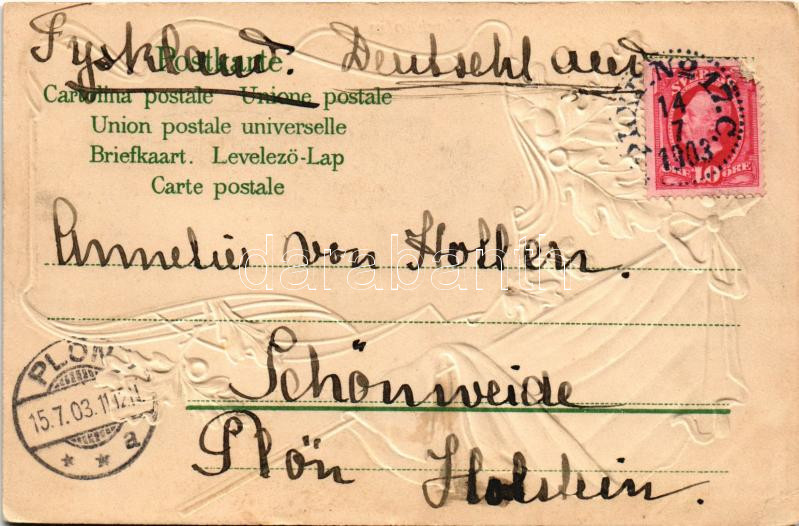 Tyskland. Deutschland
Postkarte.
Cartolina postale Unione postale
Union postale universelle
Briefkaart. Levelezö-Lap
Carte postale
No 17. C.
14
7
1903
10 ÖRE
Annelies von Hollen.
darabanth
Schönweide
PLÖN
15.7.03.11-12.V.
* * a
Plön Holstein.